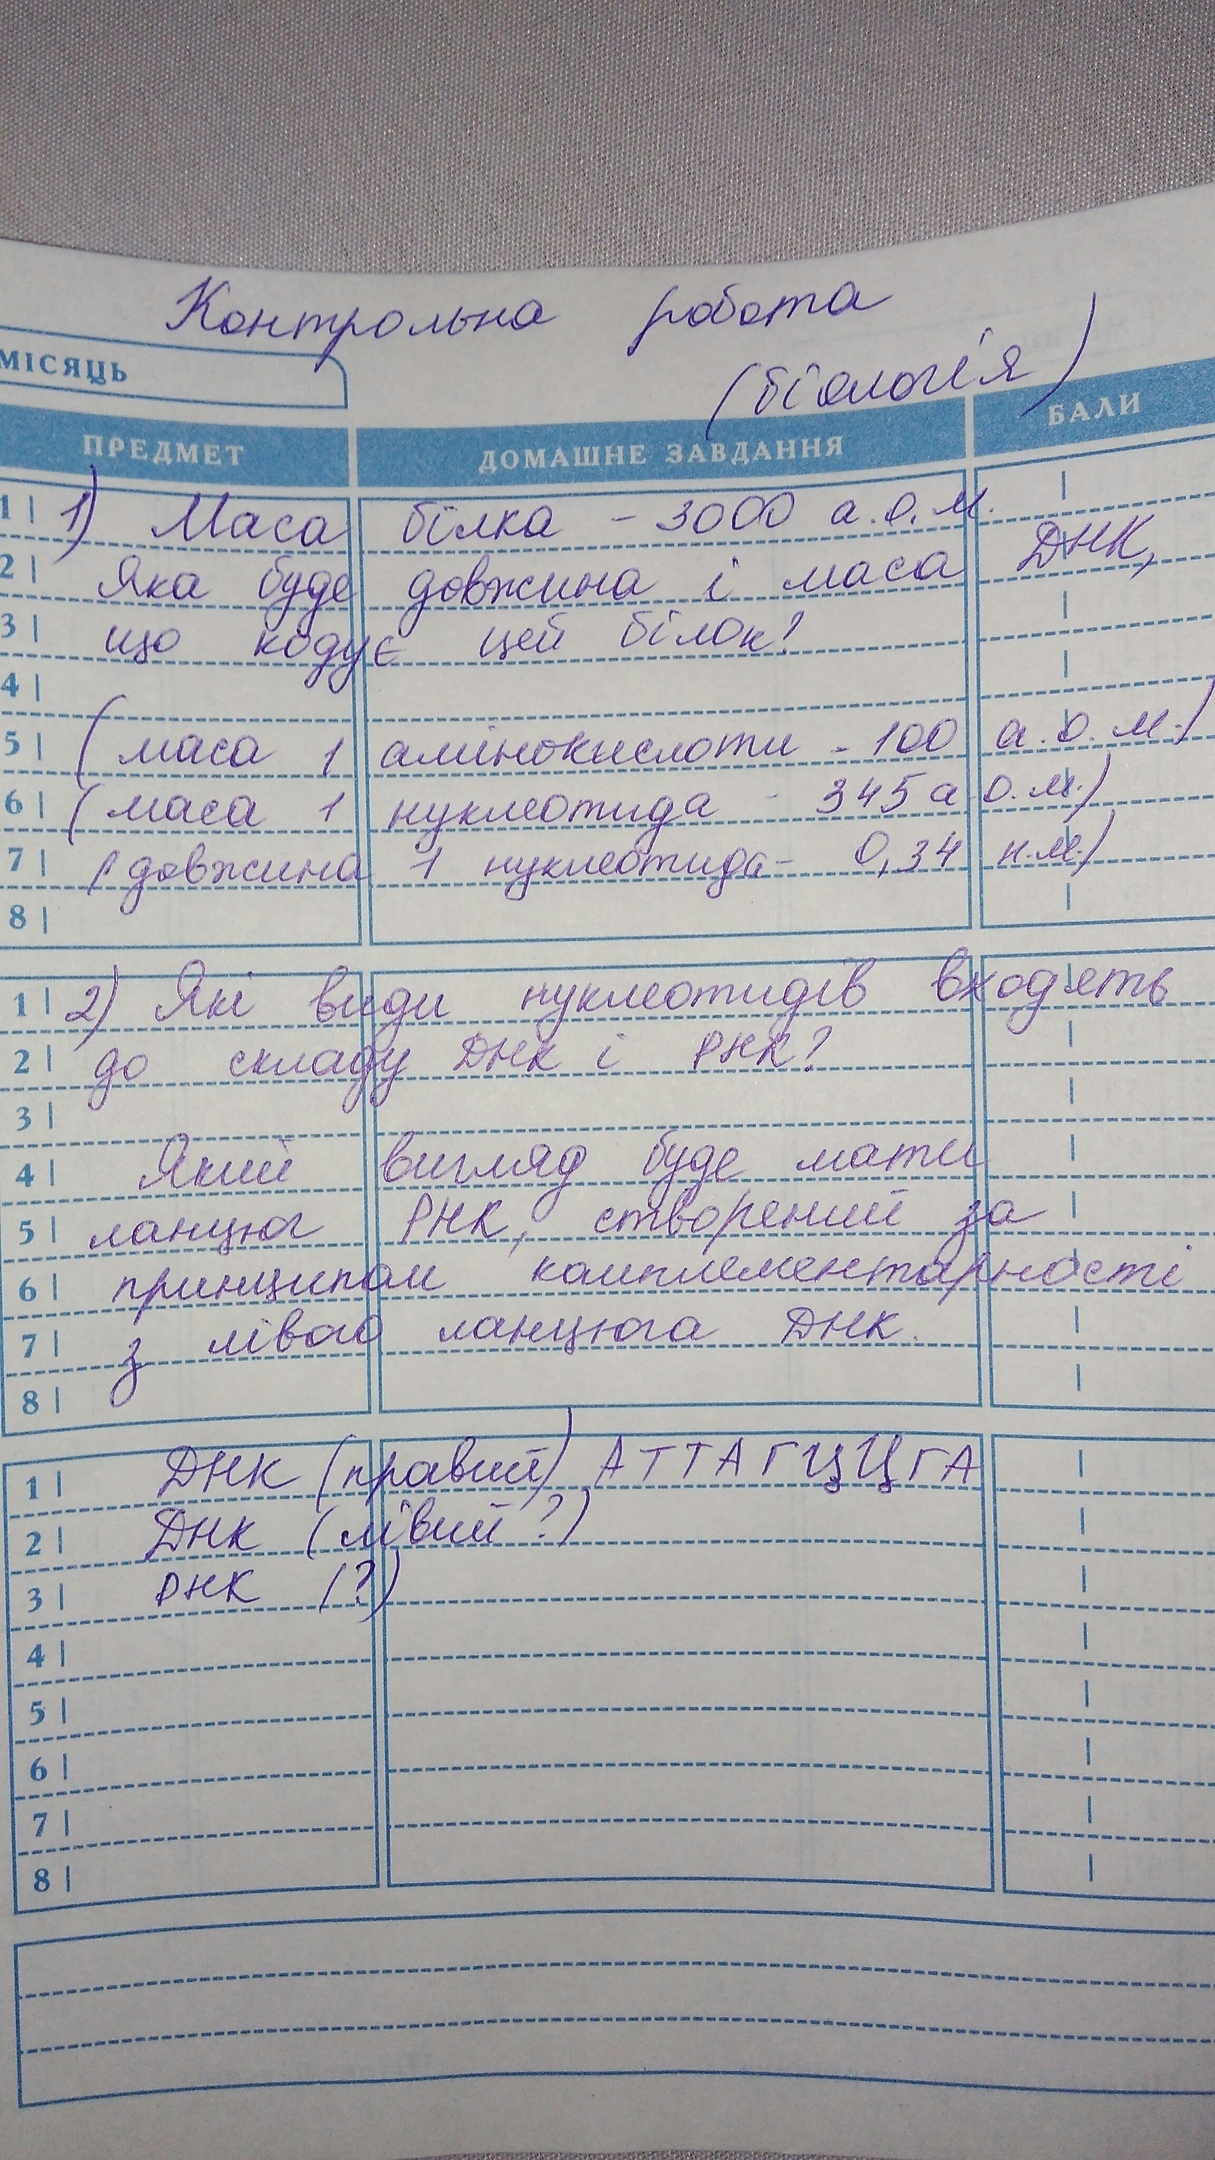 Контрольна робота
(біологія)
МІСЯЦЬ
ПРЕДМЕТ ДОМАШНЄ ЗАВДАННЯ БАЛИ
1 1) Маса білка - 3000 а.о.м.
2 Яка буде довжина і маса ДНК,
3 що кодує цей білок?
4
5 (маса 1 амінокислоти - 100 а.о.м.)
6 (маса 1 нуклеотида - 345 а.о.м.)
7 (довжина 1 нуклеотида - 0,34 н.м.)
8
1 2) Які види нуклеотидів входять
2 до складу ДНК і РНК?
3
4 Який вигляд буде мати
5 ланцюг РНК, створений за
6 принципом комплементарності
7 з лівого ланцюга ДНК.
8
1 ДНК (правий) АТТАГЦЦГА
2 ДНК (лівий?)
3 РНК (?)
4
5
6
7
8